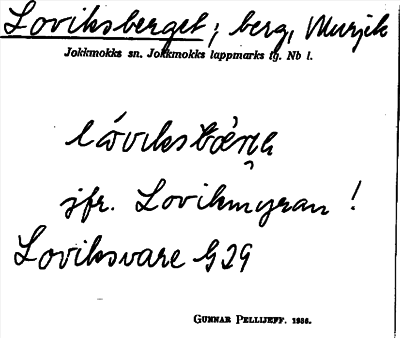 Loviksberget; berg, Murjek
Jokkmokks sn. Jokkmokks lappmarks tg. Nb l.
jfr. Lovikmyran !
Loviksvare G29
GUNNAR PELLIJEFF. 1936.